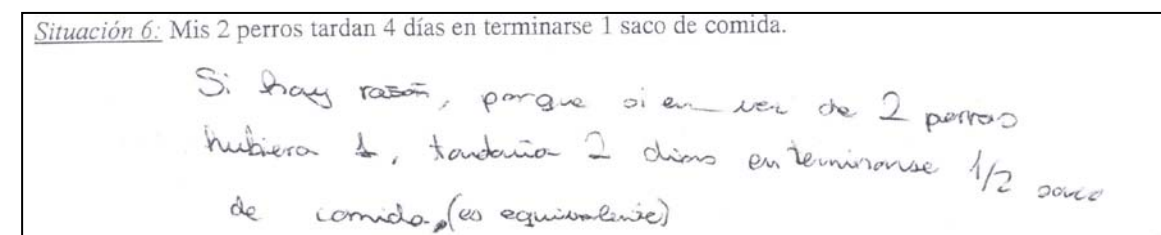 Situación 6: Mis 2 perros tardan 4 días en terminarse 1 saco de comida.
Si hay razón, porque si en vez de 2 perros
hubiera 1, tardaría 2 dias en terminarse 1/2 saco
de comida, (es equivalente)